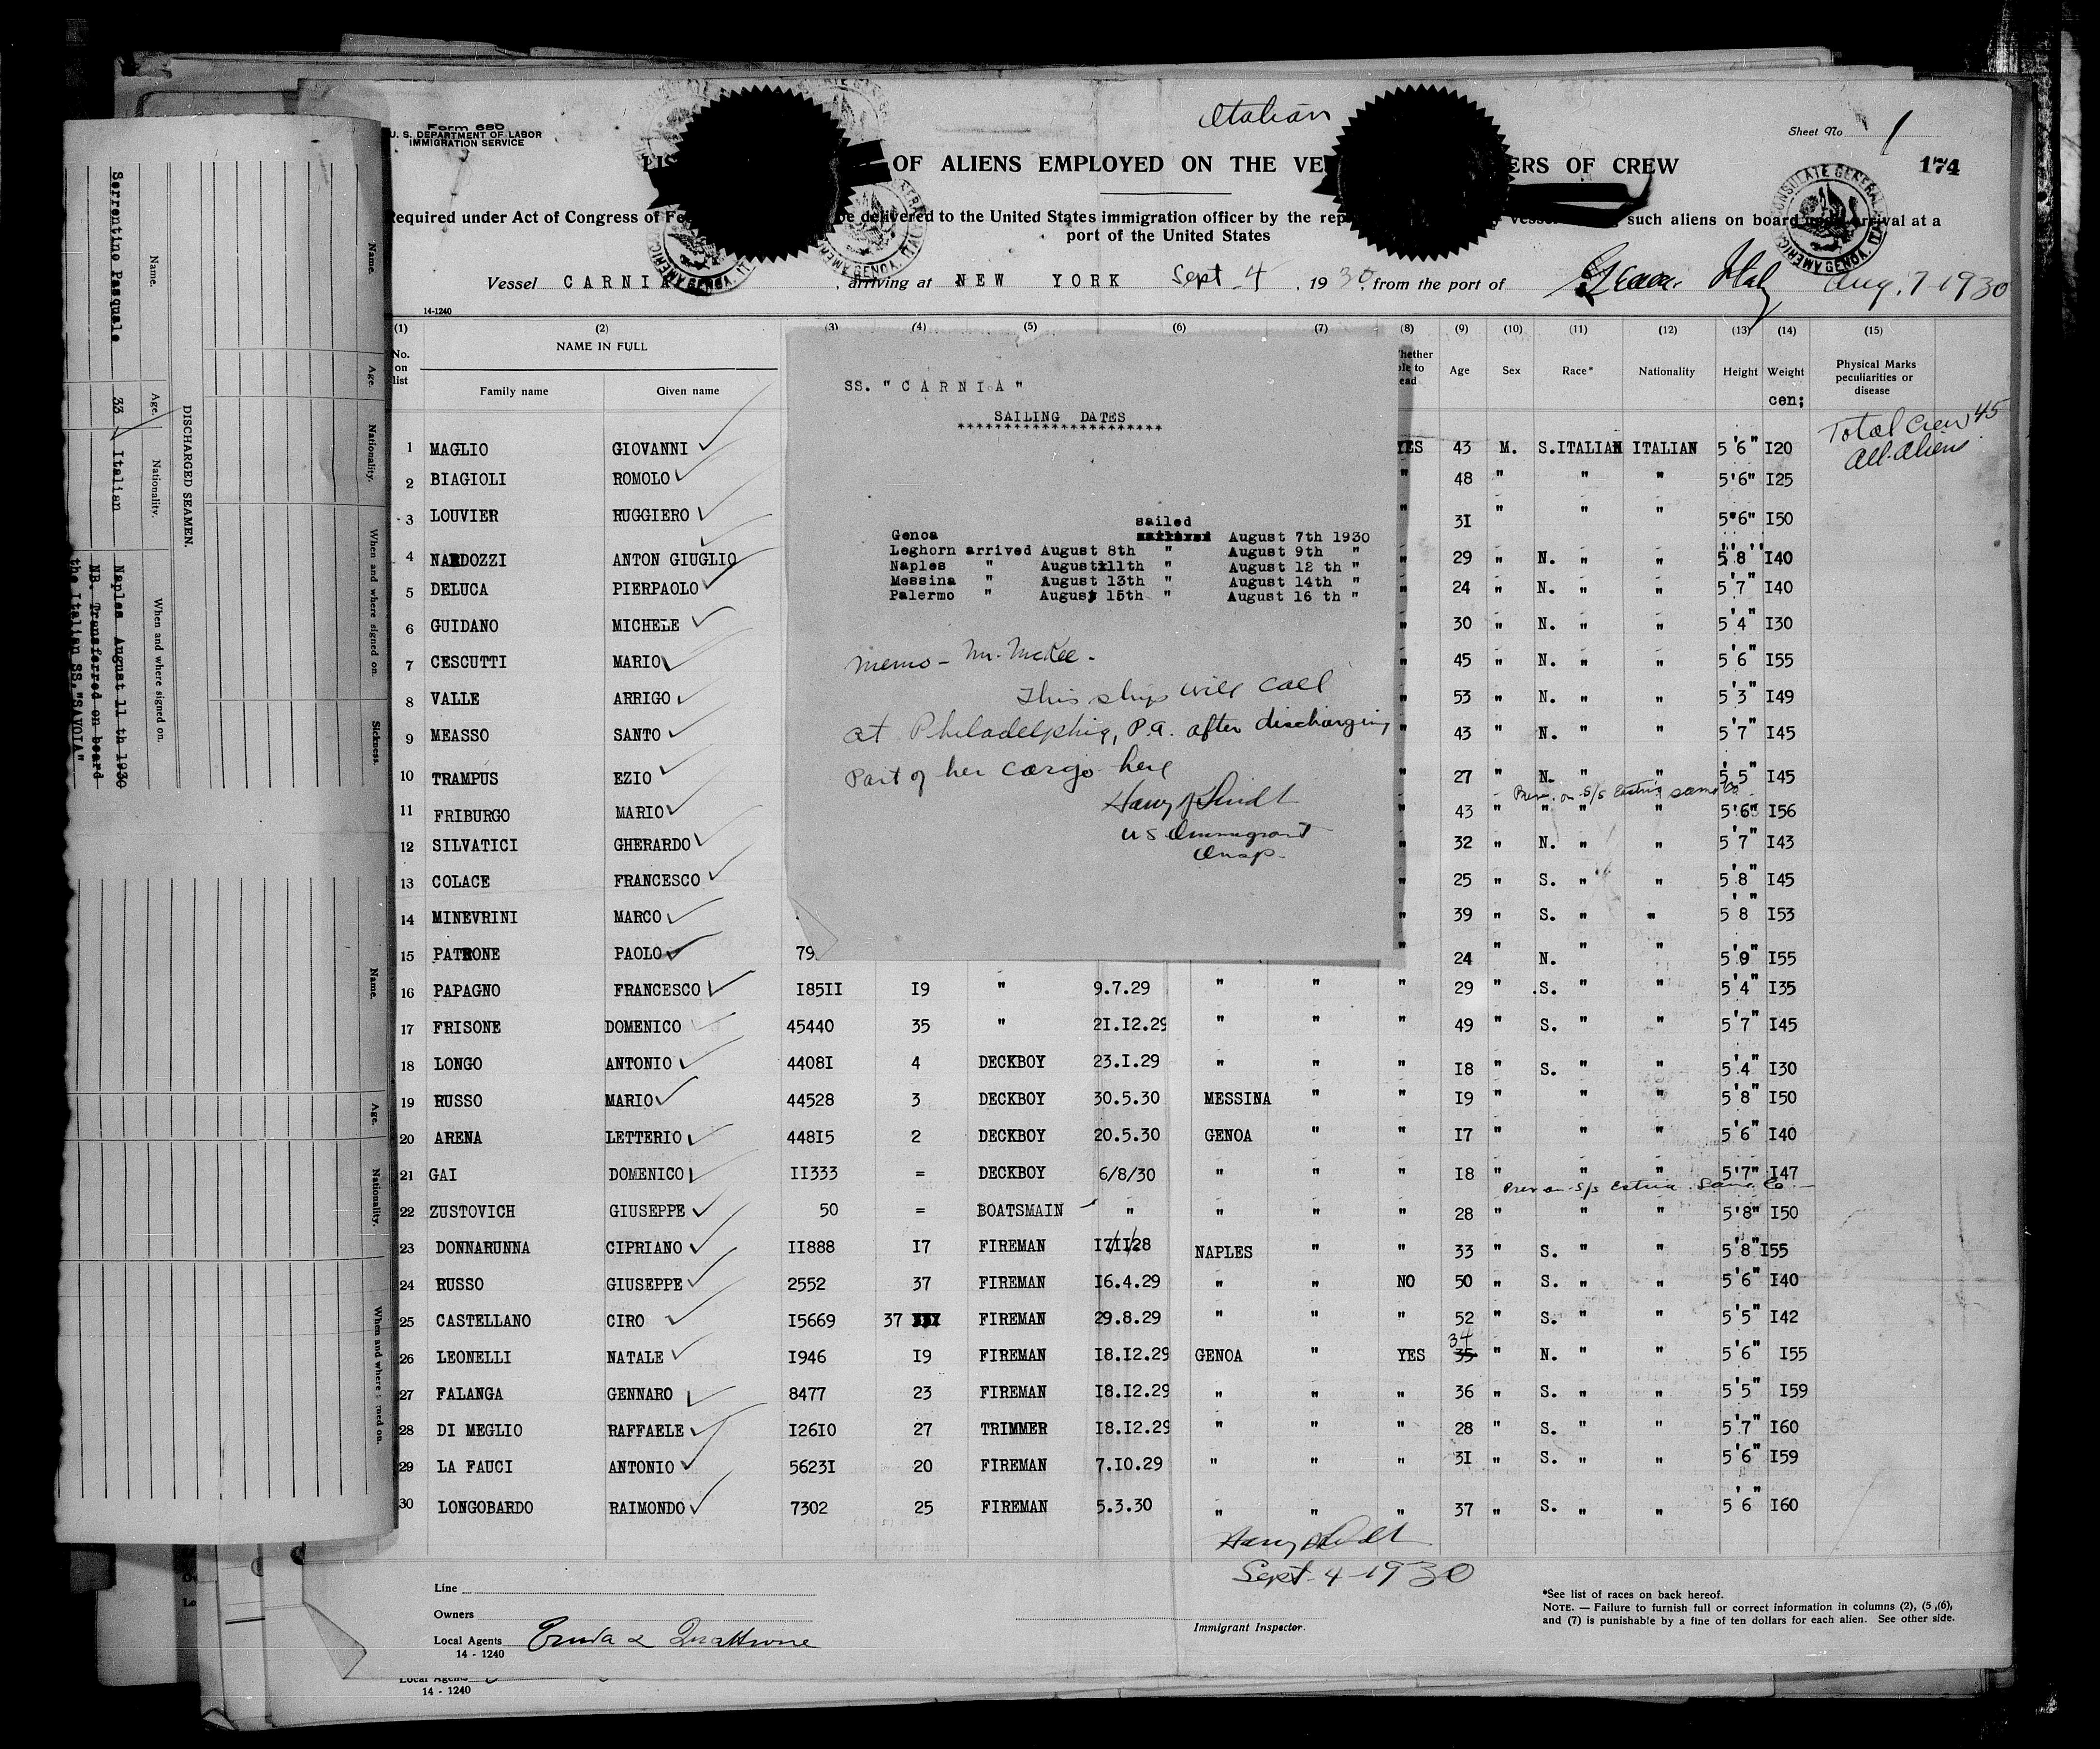 Italian
Form 680
U. S. DEPARTMENT OF LABOR
IMMIGRATION SERVICE
Sheet No 1
OF ALIENS EMPLOYED ON THE VE ERS OF CREW
174
Required under Act of Congress of Fe be delivered to the United States immigration officer by the rep vessel such aliens on board upon arrival at a
port of the United States
Vessel CARNIA, arriving at NEW YORK Sept 4, 1930, from the port of Italy Aug. 7-1930
14-1240
(1) (2) (3) (4) (5) (6) (7) (8) (9) (10) (11) (12) (13) (14) (15)
No. on list NAME IN FULL Family name Given name Whether able to read Age Sex Race* Nationality Height Weight Physical Marks peculiarities or disease
cen;
Total Crew 45
All Aliens
1 MAGLIO GIOVANNI YES 43 M. S.ITALIAN ITALIAN 5'6" I20
2 BIAGIOLI ROMOLO " 48 " " " 5'6" I25
3 LOUVIER RUGGIERO " 3I " " " 5"6" I50
4 NARDOZZI ANTON GIUGLIO " 29 " N. " " 5'8'' I40
5 DELUCA PIERPAOLO " 24 " N. " " 5'7" I40
6 GUIDANO MICHELE " 30 " N. " " 5'4" I30
7 CESCUTTI MARIO " 45 " N. " " 5'6" I55
8 VALLE ARRIGO " 53 " N. " " 5'3" I49
9 MEASSO SANTO " 43 " N. " " 5'7" I45
10 TRAMPUS EZIO " 27 " N. " " 5'5" I45
Prev. on S/S Estria same Co
11 FRIBURGO MARIO 43 " " " " 5'6" I56
12 SILVATICI GHERARDO " 32 " N. " " 5'7" I43
13 COLACE FRANCESCO " 25 " S. " " 5'8" I45
14 MINEVRINI MARCO " 39 " S. " " 5'8" I53
15 PATRONE PAOLO 79 " 24 " N. " " 5'9" I55
16 PAPAGNO FRANCESCO I85II I9 " 9.7.29 " " " 29 " .S. " " 5'4" I35
17 FRISONE DOMENICO 45440 35 " 2I.I2.29 " " " 49 " S. " " 5'7" I45
18 LONGO ANTONIO 4408I 4 DECKBOY 23.I.29 " " " I8 " S. " " 5'4" I30
19 RUSSO MARIO 44528 3 DECKBOY 30.5.30 MESSINA " " I9 " " " 5'8" I50
20 ARENA LETTERIO 448I5 2 DECKBOY 20.5.30 GENOA " " I7 " " " 5'6" I40
21 GAI DOMENICO II333 = DECKBOY 6/8/30 " " " I8 " " " 5'7" I47
Prev on S/S Estria Same Co
22 ZUSTOVICH GIUSEPPE 50 = BOATSMAIN " " " " 28 " " " 5'8" I50
23 DONNARUNNA CIPRIANO II888 I7 FIREMAN I7/II/28 NAPLES " " 33 " S. " " 5'8" I55
24 RUSSO GIUSEPPE 2552 37 FIREMAN I6.4.29 " " NO 50 " S. " " 5'6" I40
25 CASTELLANO CIRO I5669 37 FIREMAN 29.8.29 " " " 52 " S. " " 5'5" I42
26 LEONELLI NATALE I946 I9 FIREMAN I8.I2.29 GENOA " YES 34 35 " N. " " 5'6" I55
27 FALANGA GENNARO 8477 23 FIREMAN I8.I2.29 " " " 36 " S. " " 5'5" I59
28 DI MEGLIO RAFFAELE I26I0 27 TRIMMER I8.I2.29 " " " 28 " S. " " 5'7" I60
29 LA FAUCI ANTONIO 5623I 20 FIREMAN 7.I0.29 " " " 3I " S. " " 5'6" I59
30 LONGOBARDO RAIMONDO 7302 25 FIREMAN 5.3.30 " " " 37 " S. " " 5'6" I60
SS. "CARNIA"
SAILING DATES
*********************
sailed
Genoa August 7th 1930
Leghorn arrived August 8th " August 9th "
Naples " August 11th " August 12 th "
Messina " August 13th " August 14th "
Palermo " August 15th " August 16 th "
Memo - Mr. McKee -
This ship will call
at Philadelphia, P.a. after discharging
Part of her cargo here
Harry
US Immigrant
Insp.
Harry
Sept-4-1930
Line
Owners
Local Agents
14 - 1240
Immigrant Inspector.
*See list of races on back hereof.
NOTE. — Failure to furnish full or correct information in columns (2), (5,(6),
and (7) is punishable by a fine of ten dollars for each alien. See other side.
Local Agents
14 - 1240
DISCHARGED SEAMEN.
Name. Age. Nationality. When and where signed on.
Serrentino Pasquale 33 Italian Naples August 11 th 1930
NB. Transferred on board
the Italian SS."SAVOIA"
Name. Age. Nationality. When and where signed on. Sickness.
Name. Age. Nationality. When and where signed on.
AMERICAN CONSULATE GENERAL
GENOA, ITALY